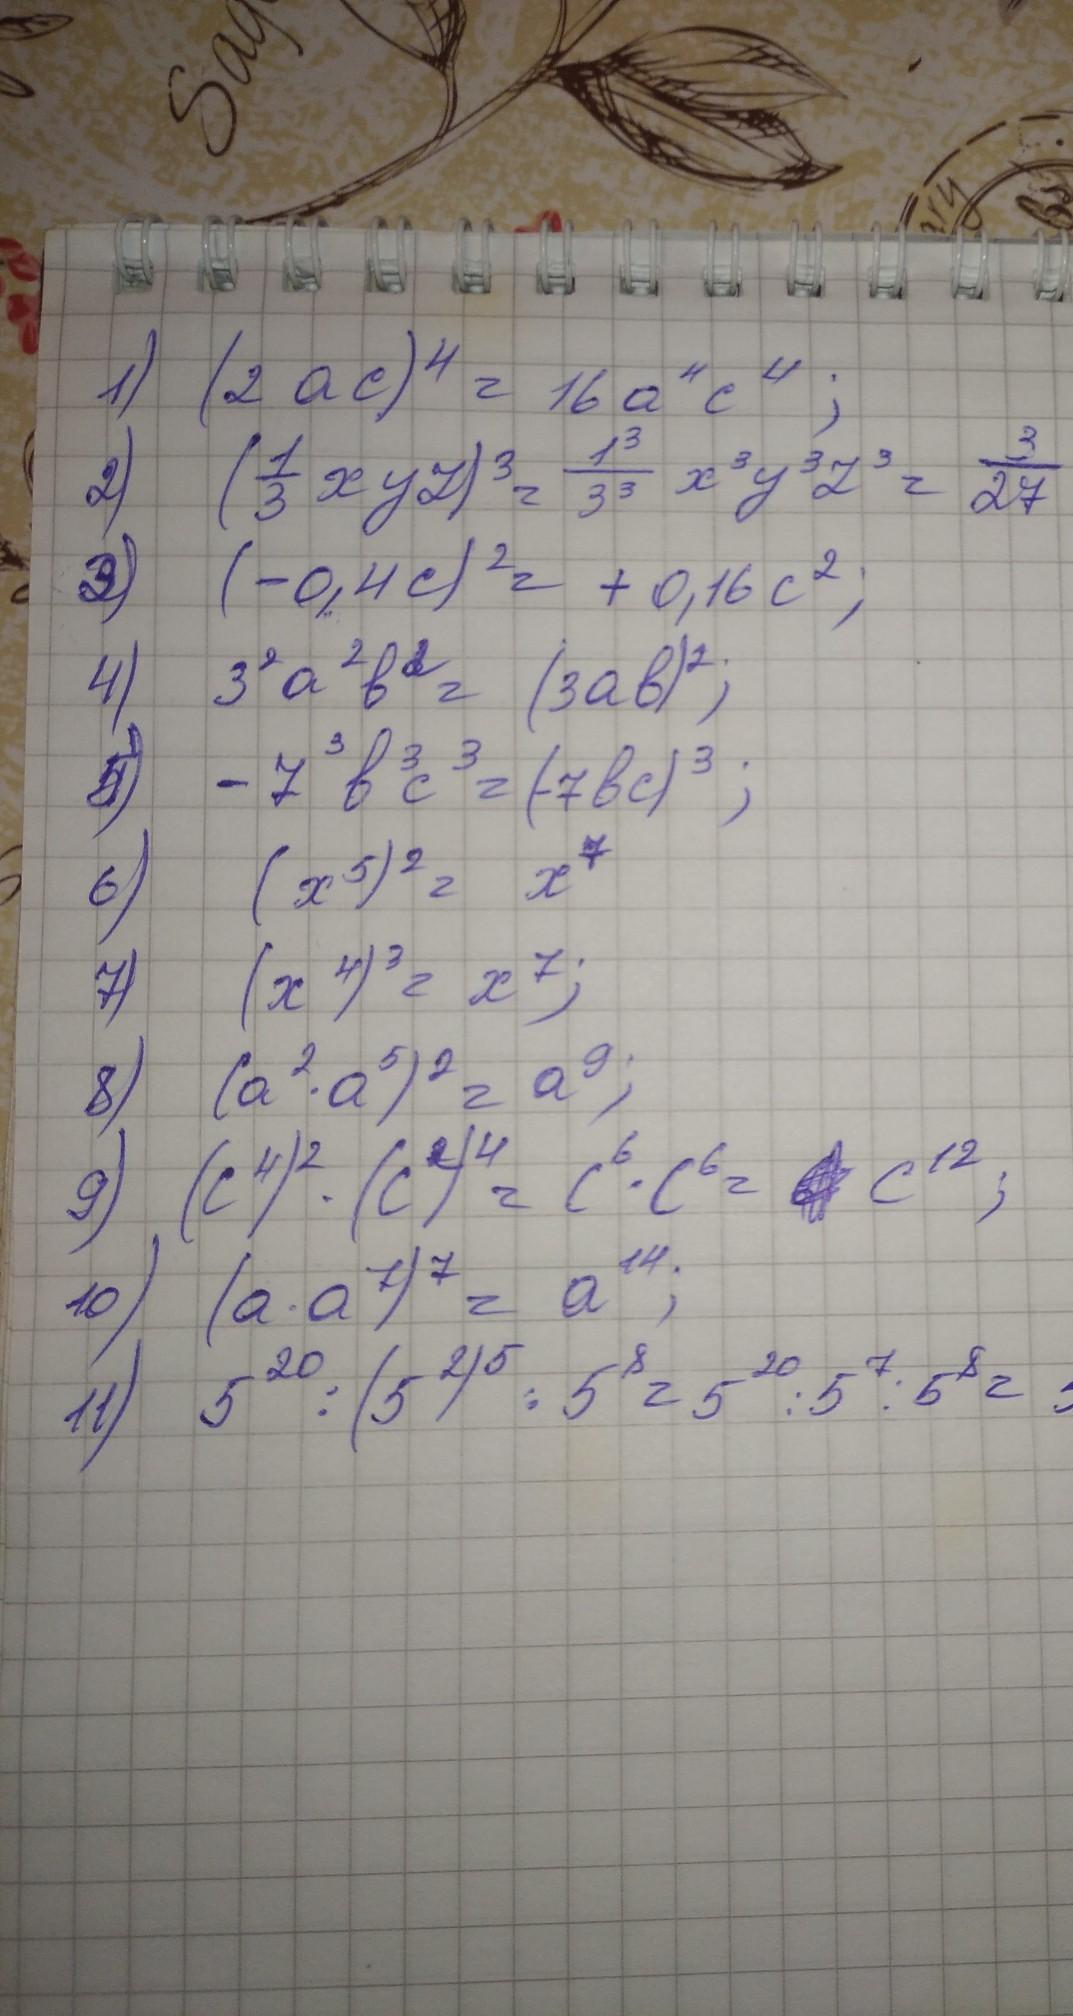 1) (2ac)⁴ = 16a⁴c⁴;
2) (1/3 xyz)³ = 1³/3³ x³y³z³ = 3/27
3) (-0,4c)² = +0,16c²;
4) 3²a²b² = (3ab)²;
5) -7³b³c³ = (-7bc)³;
6) (x⁵)² = x⁷
7) (x⁴)³ = x⁷;
8) (a²·a⁵)² = a⁹;
9) (c⁴)²·(c²)⁴ = c⁶·c⁶ = c¹²;
10) (a·a⁷)⁷ = a¹⁴;
11) 5²⁰:(5²)⁵:5⁸ = 5²⁰:5⁷:5⁸ =